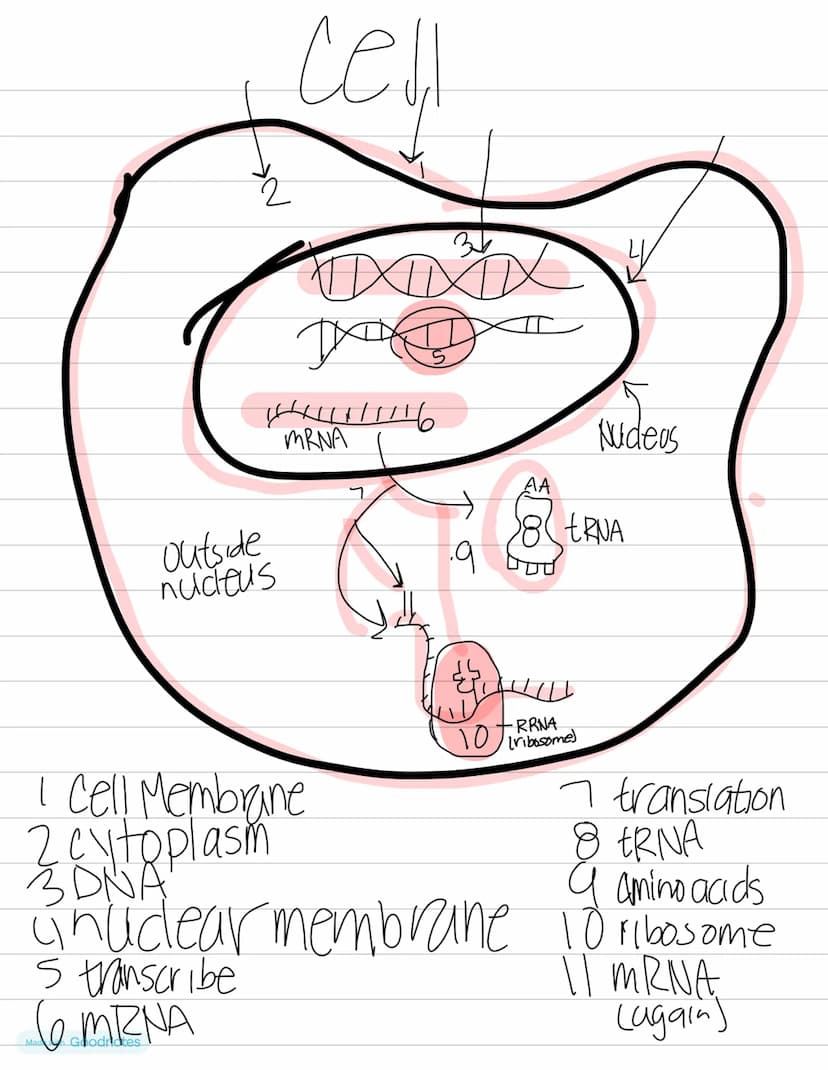 cell
1
2
3
4
5
6
mRNA
Nucleus
7
AA
8
tRNA
.9
outside
nucleus
11
10
RRNA
(ribosome)
1 Cell Membrane
2 cytoplasm
3 DNA
4 nuclear membrane
5 transcribe
6 mRNA
7 translation
8 tRNA
9 amino acids
10 ribosome
11 mRNA
(again)
Made with Goodnotes